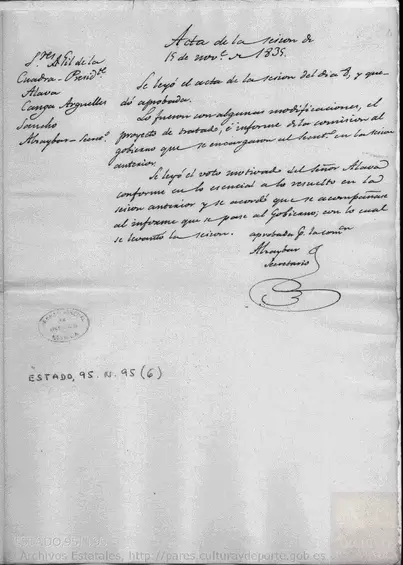 Acta de la sesion de
15 de novre. de 1835.
Sres. Gil de la
Cuadra - Presidte.
Alava
Canga Arguelles
Sancho
Secno.
Se leyó el acta de la sesion del dia 8, y que-
dó aprobada.
Lo fueron con algunas modificaciones, el
proyecto de tratado, é informe de la comision al
gobierno que se encargaron al en la sesion
anterior.
Se leyó el voto motivado del Señor Alava
conforme en lo esencial a lo resuelto en la
sesion anterior y se acordó que se acompañase
al informe que se pase al Gobierno; con lo cual
se levantó la sesion.
aprobada la
Secretario
ESTADO, 95. N. 95 (6)
Archivos Estatales, http://pares.culturaydeporte.gob.es